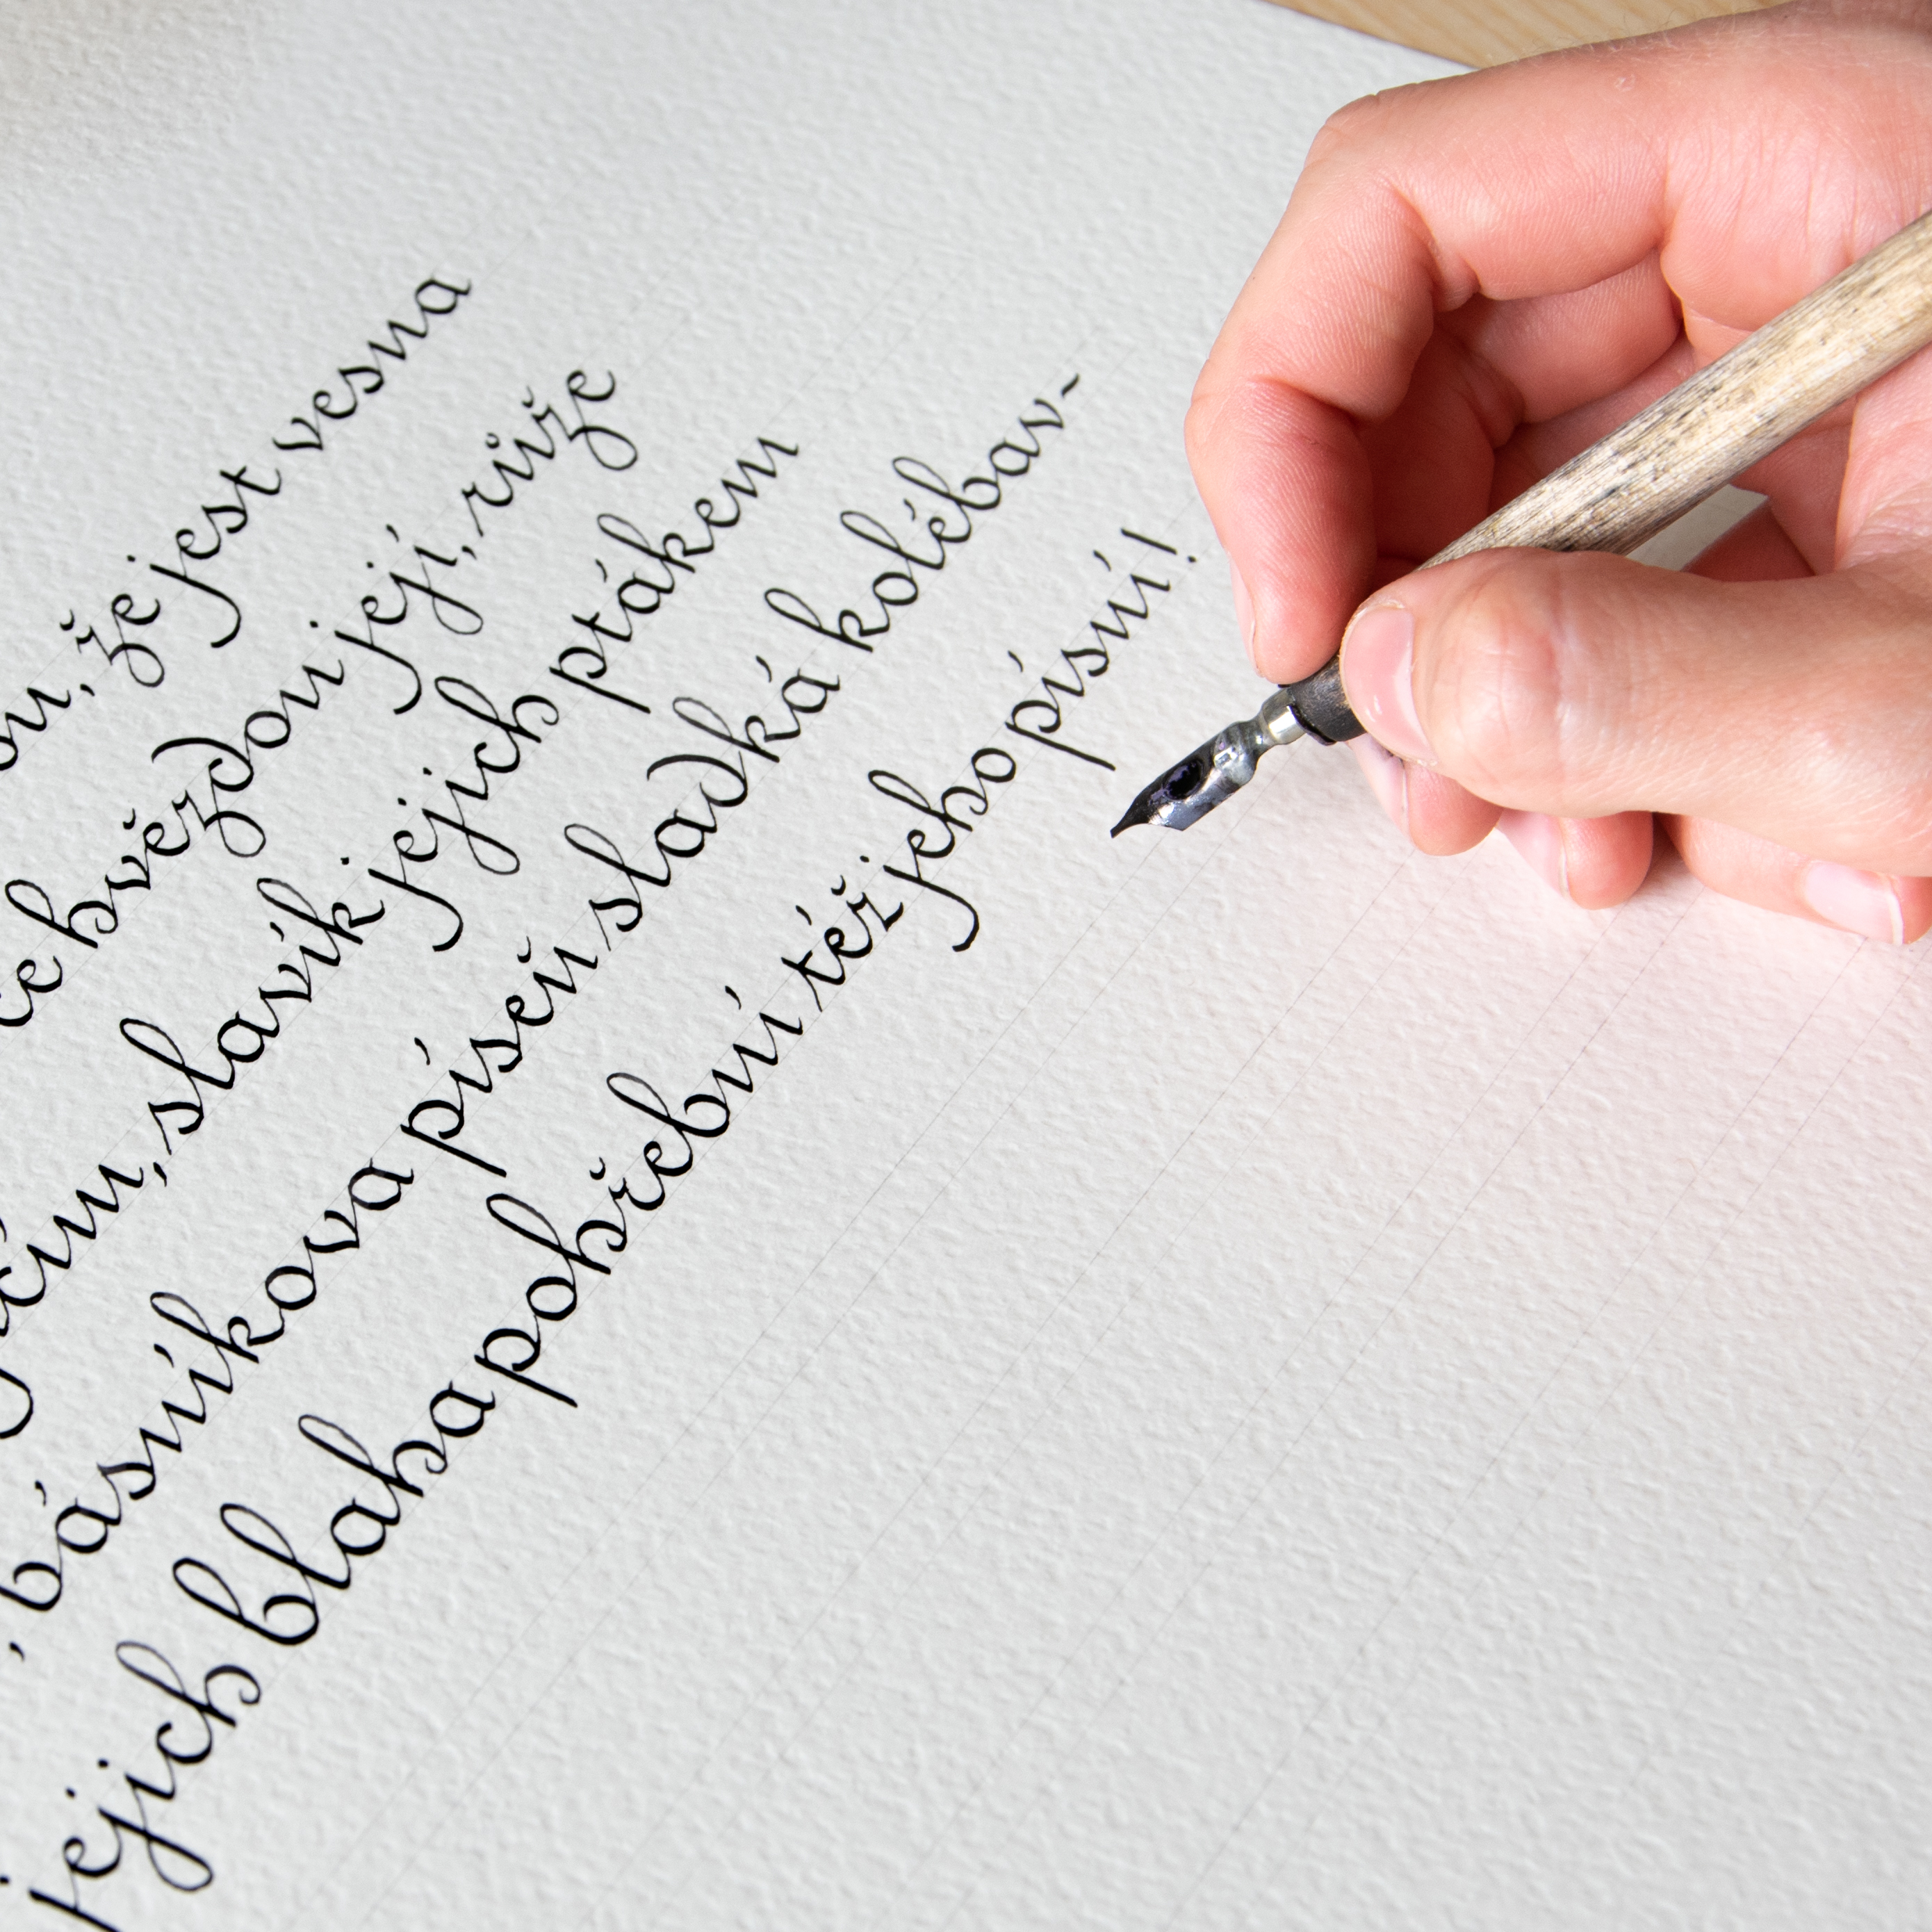 že jest vesna
hvězdou její, růže
slavík jejich ptákem
básníkova píseň sladká kolébav-
jejich blaha pohřební též jeho písní!